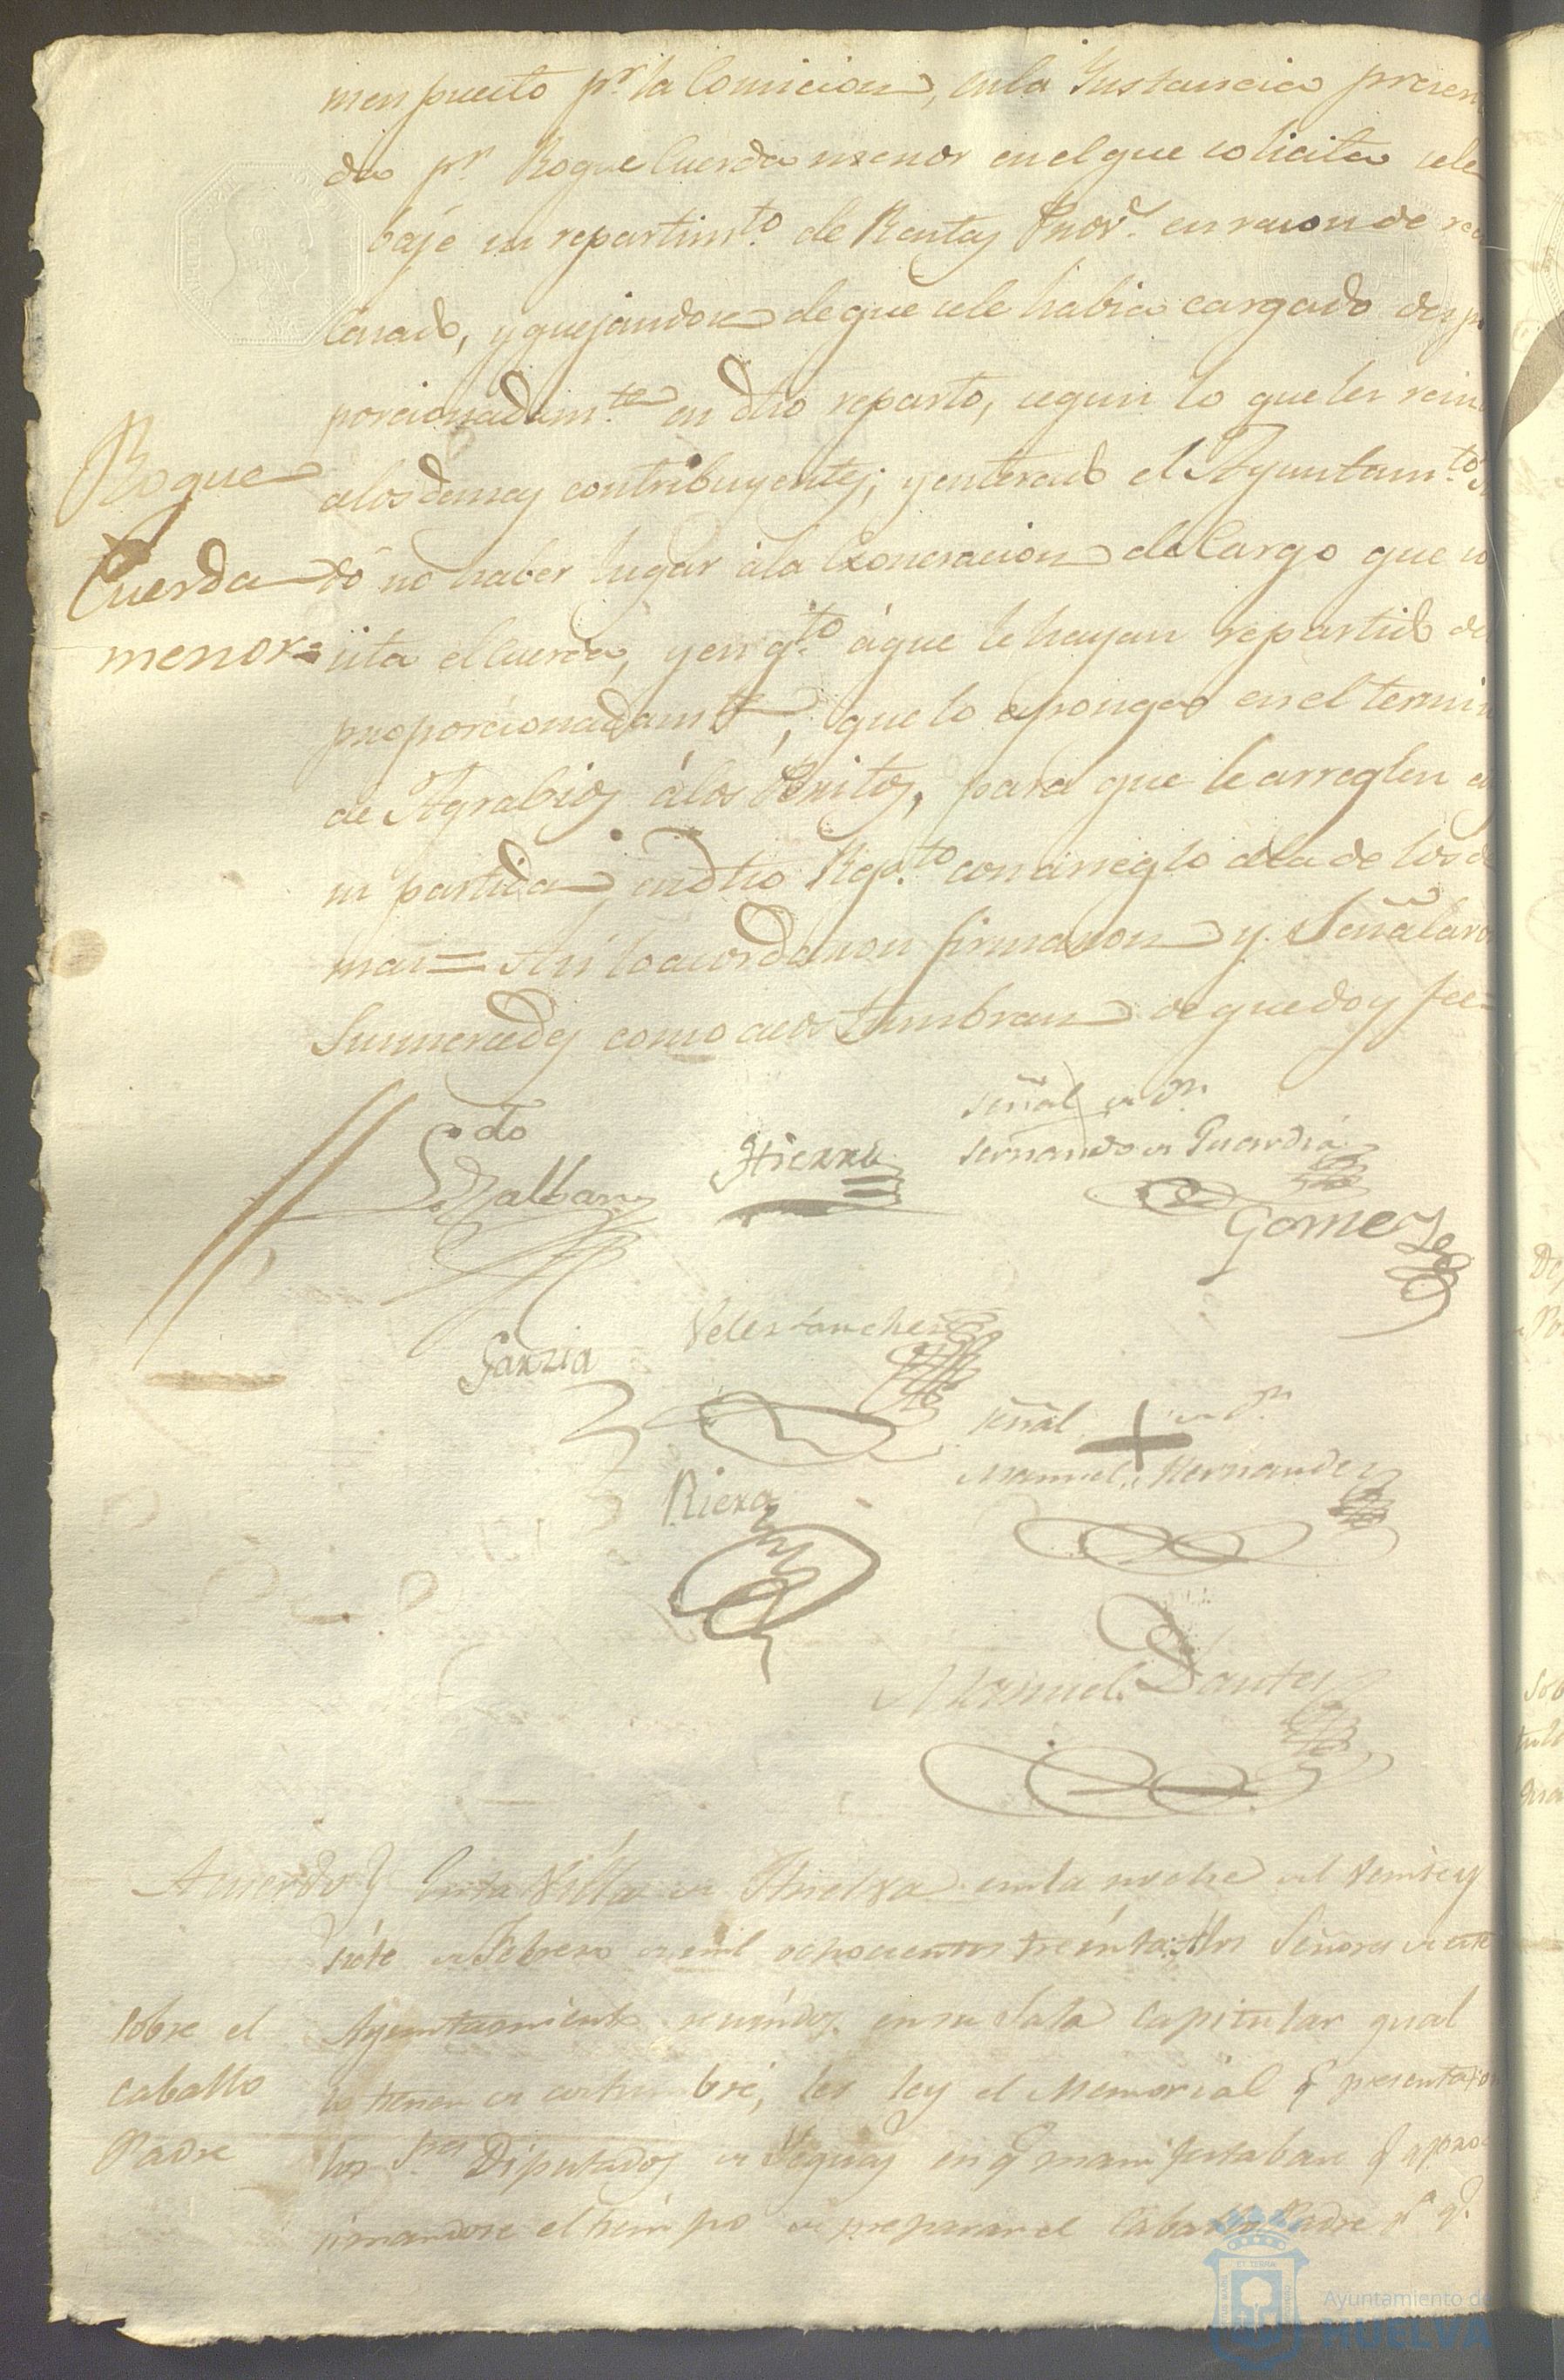 men puesto pr. la Comicion, en la Ynstancia presen
da pr. Roque Cuerda menor en el que solicita sele
baje su repartimto. de Rentas Prov.s en razon de
Casado, y quejandose de que sele habia cargado despro
porcionadamte. en dho reparto, segun lo que les
Roque
alos demas contribuyentes; y enterado el Ayuntamto.
Cuerda
dó no haber lugar á la Exoneracion del Cargo que so
menor=
sita el Cuerda, y en qto. á que le hayan repartido des
proporcionadamte, que lo esponga en el termin
de Agrabios á los Peritos, para que le arreglen
su partida en dho Repto. con arreglo ala de los de
mas= Asi lo acordaron firmaron y Señalaron
Sus mercedes como acostumbran de que doy fee=
Señal de Dn.
Ldo
Hierro
Fernando de Guardia
Gomez
Garzia
Velez Sanchez
Señal de Dn.
Manuel Hernandez
Riera
Manuel Dantes
Acuerdo} En la Villa de Huelva en la noche del veinte y
siete de Febrero de mil ochocientos treinta; los Señores de este
sobre el
Ayuntamiento reunidos en su Sala Capitular qual
caballo
lo tienen de costumbre, les ley el Memorial q presentaron
Padre
los Sres Diputados de Yeguas en q manifestaban q aproc
simandose el tiempo de preparar el Caballo Padre pa q.
Ayuntamiento de
HUELVA